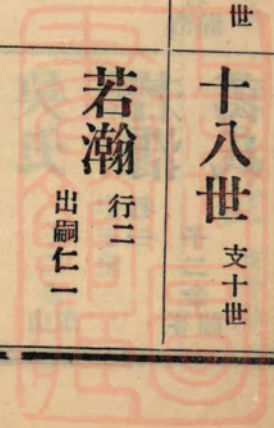 世
十八世 支十世
若瀚 行二
出嗣仁一